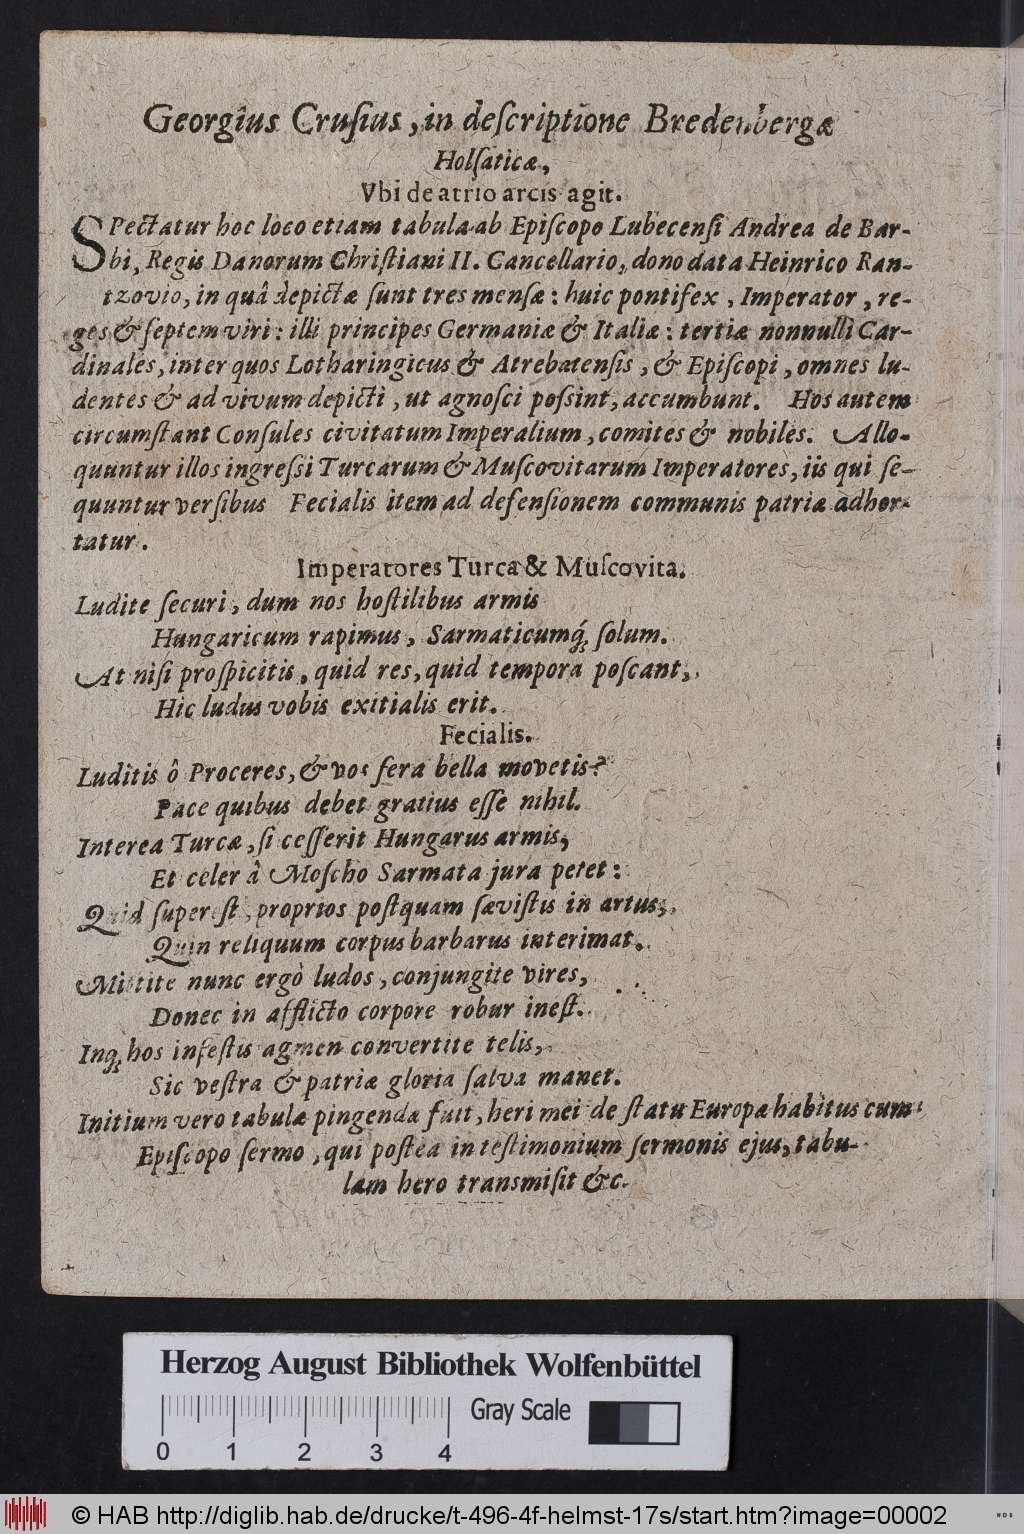 Georgius Cruſius, in deſcriptione Bredenbergæ
Holſaticæ,
Vbi de atrio arcis agit.
SPectatur hoc loco etiam tabula ab Epiſcopo Lubecenſi Andrea de Bar-
bi, Regis Danorum Chriſtiani II. Cancellario, dono data Heinrico Ran-
tzovio, in quâ depictæ ſunt tres menſæ: huic pontifex, Imperator, re-
ges & ſeptem viri: illi principes Germaniæ & Italiæ: tertiæ nonnulli Car-
dinales, inter quos Lotharingicus & Atrebatenſis, & Epiſcopi, omnes lu-
dentes & ad vivum depicti, ut agnoſci poſsint, accumbunt. Hos autem
circumſtant Conſules civitatum Imperalium, comites & nobiles. Allo-
quuntur illos ingreſsi Turcarum & Muſcovitarum Imperatores, iis qui ſe-
quuntur verſibus Fecialis item ad defenſionem communis patriæ adhor-
tatur.
Imperatores Turca & Muſcovita.
Ludite ſecuri, dum nos hoſtilibus armis
Hungaricum rapimus, Sarmaticumq́; ſolum.
At niſi proſpicitis, quid res, quid tempora poſcant,
Hic ludus vobis exitialis erit.
Fecialis.
Luditis ô Proceres, & vos fera bella movetis?
Pace quibus debet gratius eſſe nihil.
Interea Turcæ, ſi ceſſerit Hungarus armis,
Et celer à Moſcho Sarmata jura petet:
Quid ſupereſt, proprios poſtquam ſæviſtis in artus,
Quin reliquum corpus barbarus interimat.
Mittite nunc ergò ludos, conjungite vires,
Donec in afflicto corpore robur ineſt.
Inq; hos infeſtis agmen convertite telis,
Sic veſtra & patriæ gloria ſalva manet.
Initium vero tabulæ pingendæ fuit, heri mei de ſtatu Europæ habitus cum
Epiſcopo ſermo, qui poſtea in teſtimonium ſermonis ejus, tabu-
lam hero transmiſit &c.
Herzog August Bibliothek Wolfenbüttel
Gray Scale
0 1 2 3 4
© HAB http://diglib.hab.de/drucke/t-496-4f-helmst-17s/start.htm?image=00002
WDB